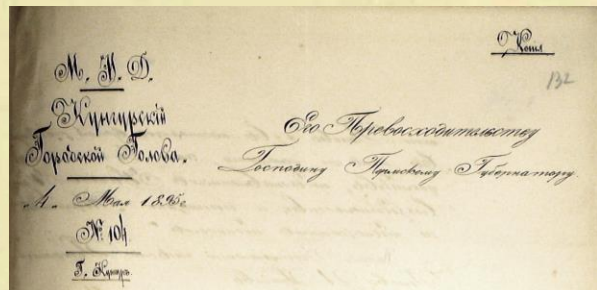 Копія
132
М. В. Д.
Кунгурскій
Городской Голова.
4 Мая 1895 г.
№ 104
Г. Кунгуръ.
Его Превосходительству
Господину Пермскому Губернатору.